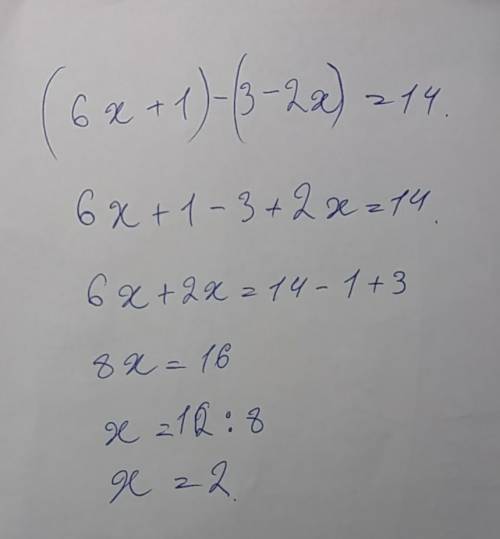 (6x+1)-(3-2x)=14.
6x+1-3+2x=14.
6x+2x=14-1+3
8x=16
x=16:8
x=2.